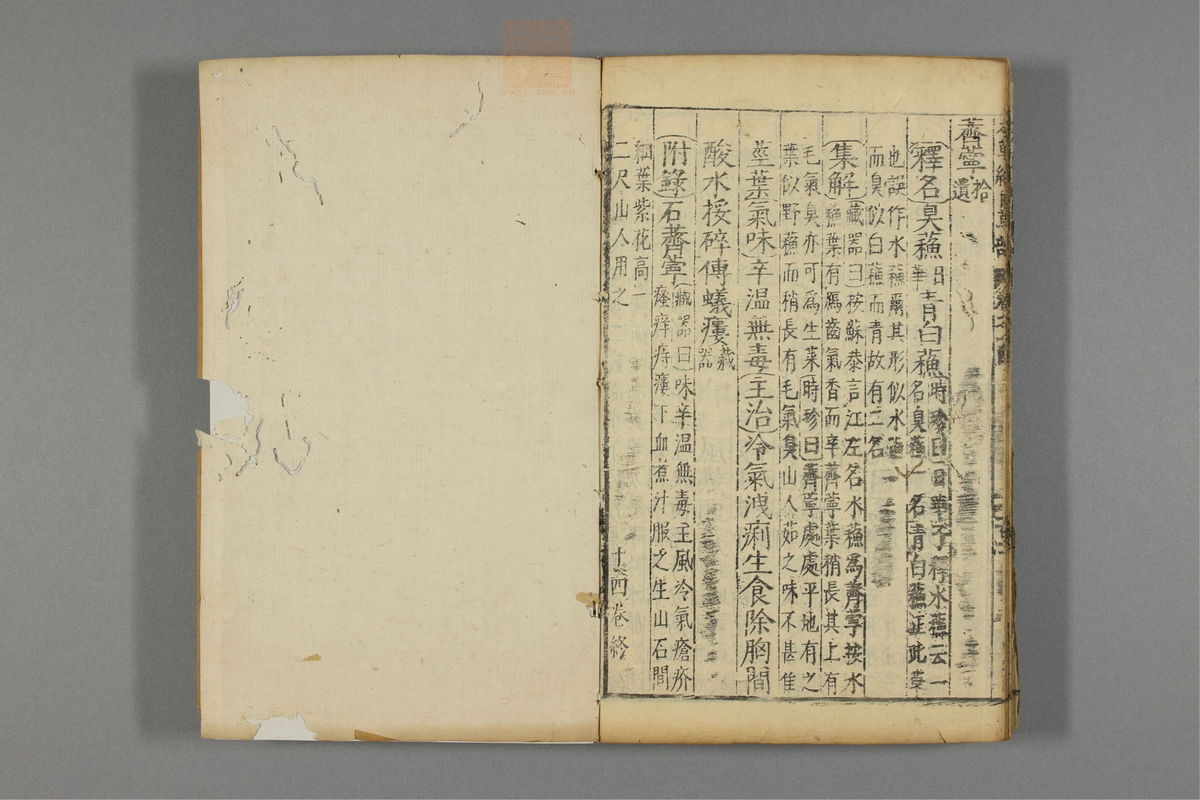 薺薴拾遺
釋名臭蘇日華青白蘇時珍曰日華子釋水蘇云一名臭蘇一名青白蘇正此草
也誤作水蘇爾其形似水蘇而臭似白蘇而青故有二名
集解藏器曰按蘇恭言江左名水蘇為薺薴按水蘇葉有鴈齒氣香而辛薺薴葉稍長其上有
毛氣臭亦可為生菜時珍曰薺薴處處平地有之葉似野蘇而稍長有毛氣臭山人茹之味不甚佳
莖葉氣味辛溫無毒主治冷氣洩痢生食除胸間
酸水挼碎傅蟻瘻藏器
附錄石薺薴藏器曰味辛溫無毒主風冷氣瘡疥瘙痒痔瘻下血煮汁服之生山石間
細葉紫花高一二尺山人用之
十四卷終